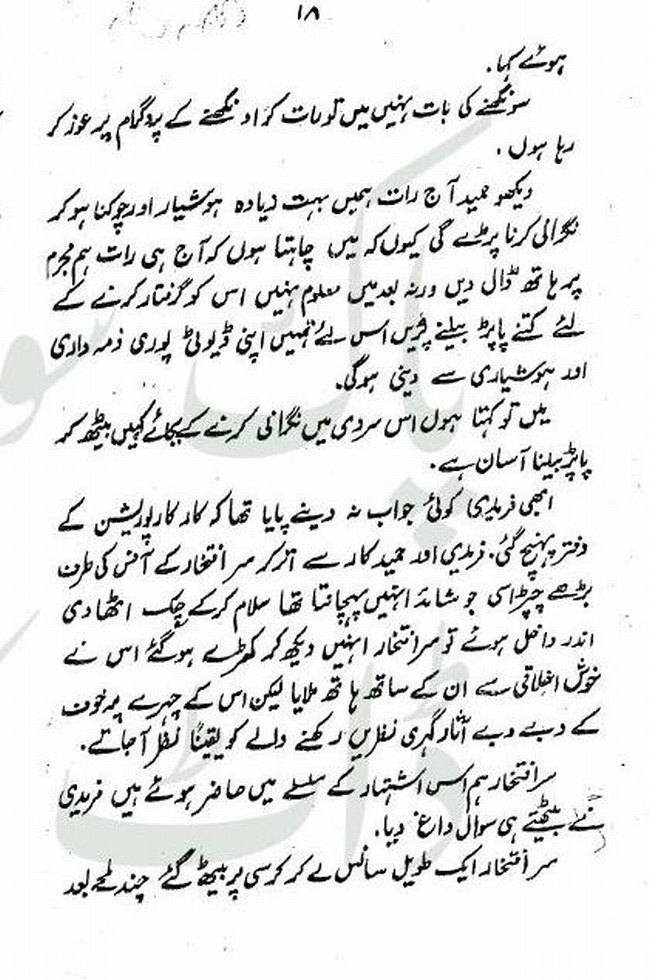 ۱۸
ہوئے کہا۔
سونگھنے کی بات نہیں میں تو رات کو اونگھنے کے پروگرام پر غور کر
رہا ہوں۔
دیکھو حمید آج رات ہمیں بہت زیادہ ہوشیار اور چوکنا ہو کر
نگرانی کرنا پڑے گی کیوں کہ میں چاہتا ہوں کہ آج ہی رات ہم مجرم
پر ہاتھ ڈال دیں ورنہ بعد میں معلوم نہیں اس کو گرفتار کرنے کے
لئے کتنے پاپڑ بیلنے پڑیں اس لئے تمہیں اپنی ڈیوٹی پوری ذمہ داری
اور ہوشیاری سے دینی ہوگی۔
میں تو کہتا ہوں اس سردی میں نگرانی کرنے کے بجائے کہیں بیٹھ کر
پاپڑ بیلنا آسان ہے۔
ابھی فریدی کوئی جواب نہ دینے پایا تھا کہ کار کارپوریشن کے
دفتر پہنچ گئی۔ فریدی اور حمید کار سے اتر کر سر افتخار کے آفس کی طرف
بڑھے چپڑاسی جو شائد انہیں پہچانتا تھا سلام کر کے چک اٹھا دی
اندر داخل ہوئے تو سر افتخار انہیں دیکھ کر کھڑے ہوگئے اس نے
خوش اخلاقی سے ان کے ساتھ ہاتھ ملایا لیکن اس کے چہرے پر خوف
کے دبے دبے آثار گہری نظریں رکھنے والے کو یقیناً نظر آجاتے۔
سر افتخار ہم اس اشتہار کے سلسلے میں حاضر ہوئے ہیں فریدی
نے بیٹھتے ہی سوال داغ دیا۔
سر افتخار ایک طویل سانس لے کر کرسی پر بیٹھ گئے چند لمحے بعد
پاک سو
ڈاٹ